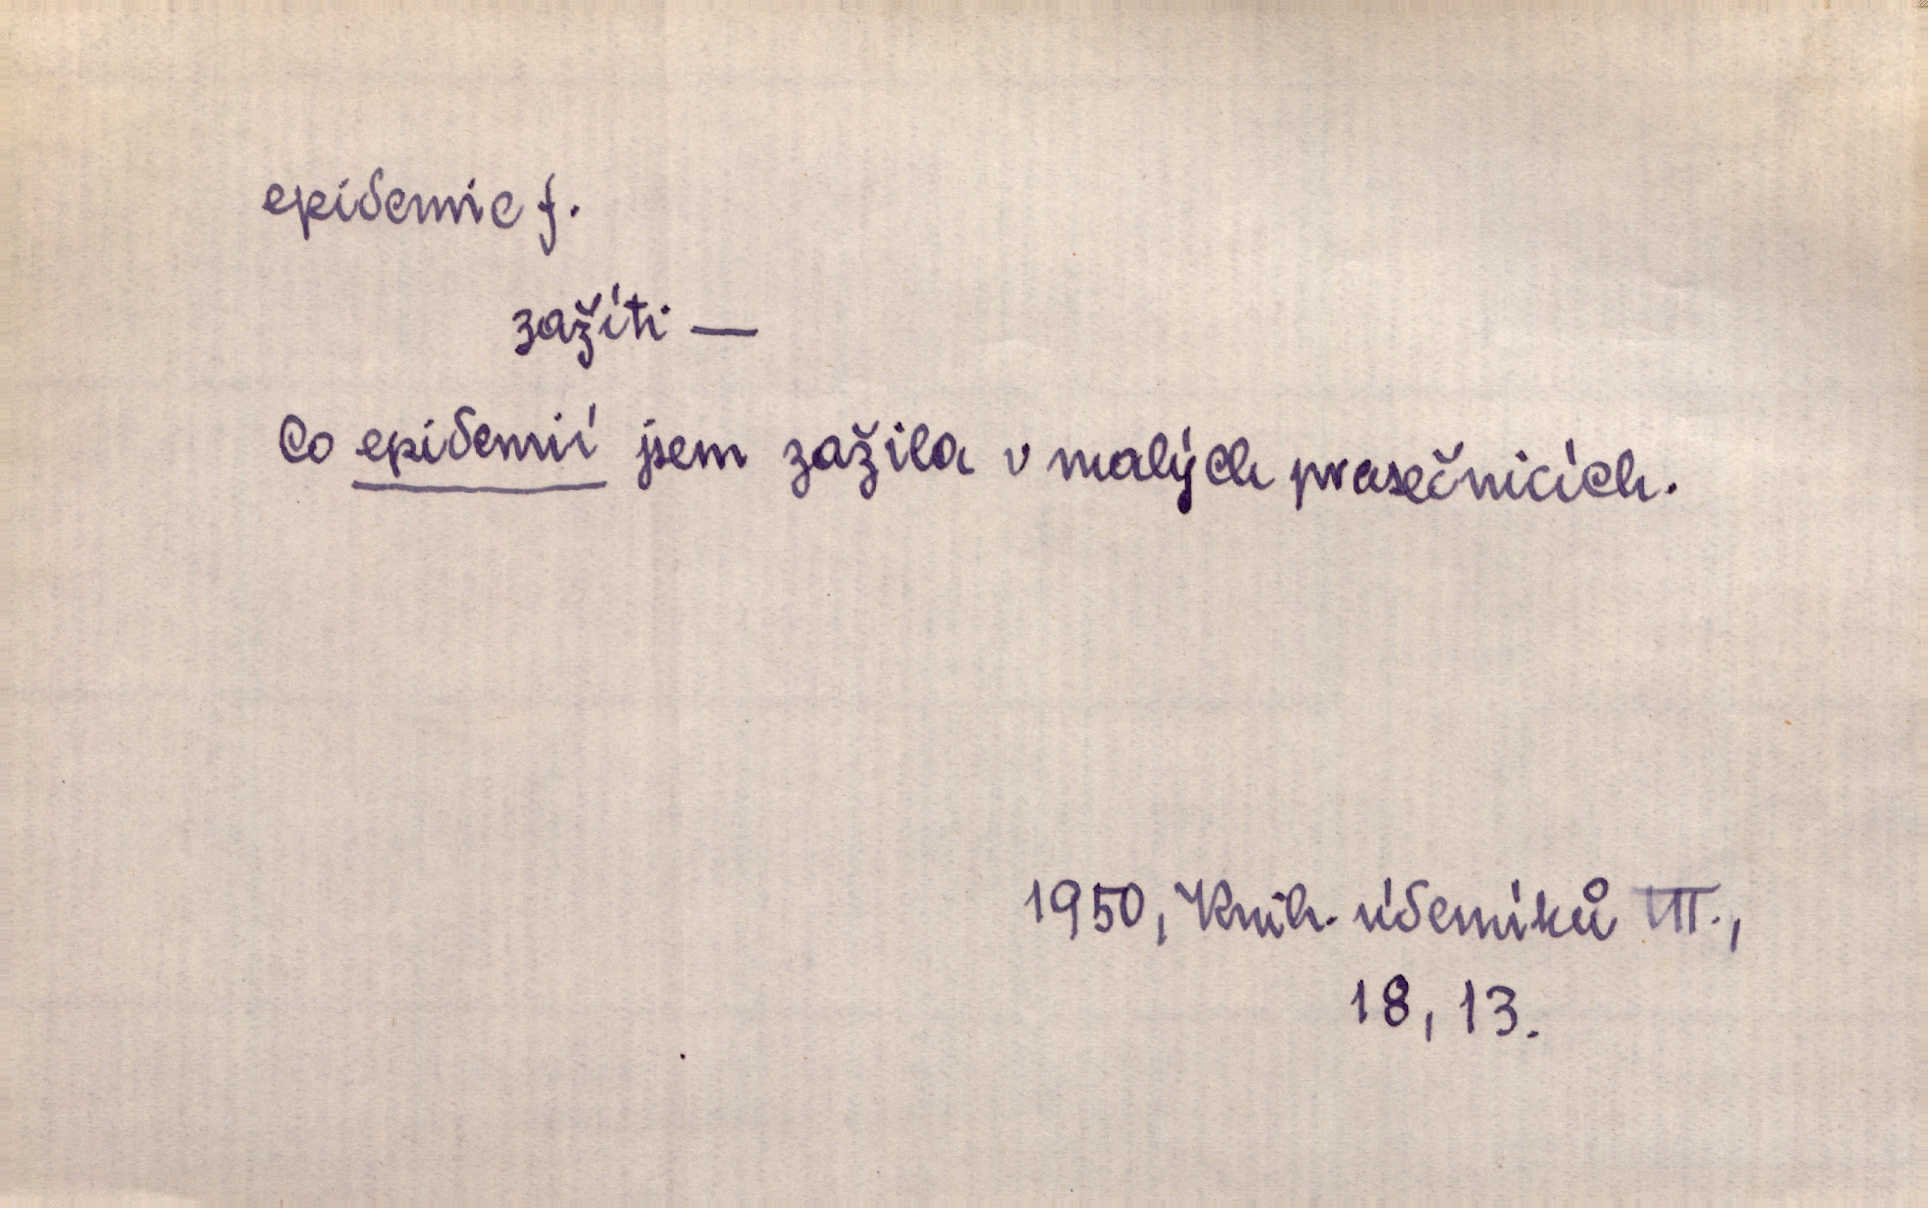 epidemie f.
zažíti —
Co epidemií jsem zažila v malých prasečnicích.
1950, Knih. úderníků III.,
18, 13.